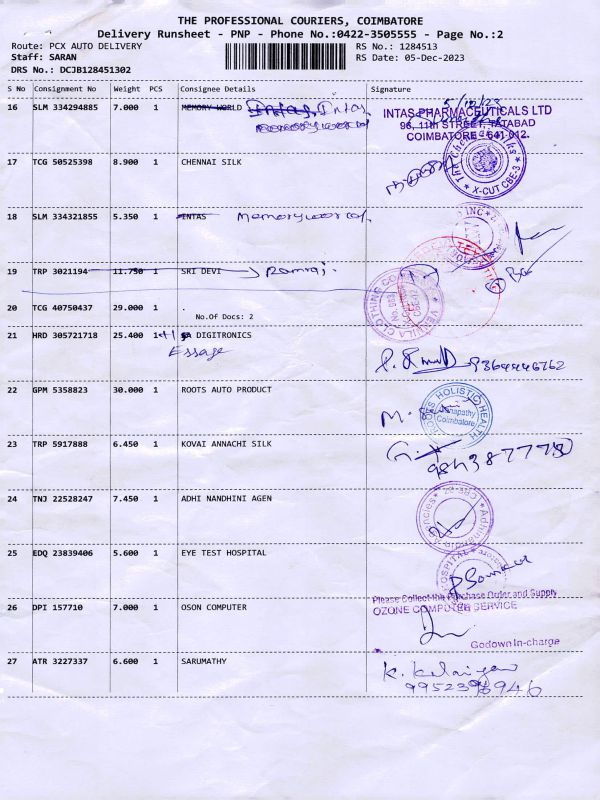 THE PROFESSIONAL COURIERS, COIMBATORE
Delivery Runsheet - PNP - Phone No.:0422-3505555 - Page No.:2
Route: PCX AUTO DELIVERY
RS No.: 1284513
Staff: SARAN
RS Date: 05-Dec-2023
DRS No.: DCJB128451302
S No Consignment No Weight PCS Consignee Details Signature
16 SLM 334294885 7.000 1 MEMORY WORLD Intas, Intas
5/12/23
INTAS PHARMACEUTICALS LTD
96, 11th STREET, TATABAD
COIMBATORE - 641 012.
17 TCG 50525398 8.900 1 CHENNAI SILK
X-CUT CBE-3
18 SLM 334321855 5.350 1 INTAS
19 TRP 3021194 11.750 1 SRI DEVI Ramraj
20 TCG 40750437 29.000 1 .
No.Of Docs: 2
21 HRD 305721718 25.400 1+1 DIGITRONICS
Essage
9364446762
22 GPM 5358823 30.000 1 ROOTS AUTO PRODUCT
HOLISTIC HEALTH
Coimbatore
23 TRP 5917888 6.450 1 KOVAI ANNACHI SILK
24 TNJ 22528247 7.450 1 ADHI NANDHINI AGEN
25 EDQ 23839406 5.600 1 EYE TEST HOSPITAL
26 DPI 157710 7.000 1 OSON COMPUTER
Please Collect the Purchase Order and Supply
OZONE COMPUTER SERVICE
Godown In-charge
27 ATR 3227337 6.600 1 SARUMATHY
9952396946